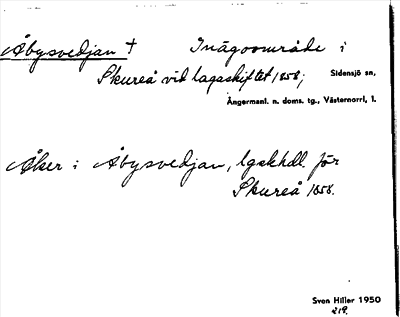 Åbysvedjan † Inägoområde i
Skureå vid lagaskiftet 1858; Sidensjö sn,
Ångermanl. n. doms. tg., Västernorrl. l.
Åker i Åbysvedjan, lgskhdl. för
Skureå 1858.
Sven Hiller 1950
219.